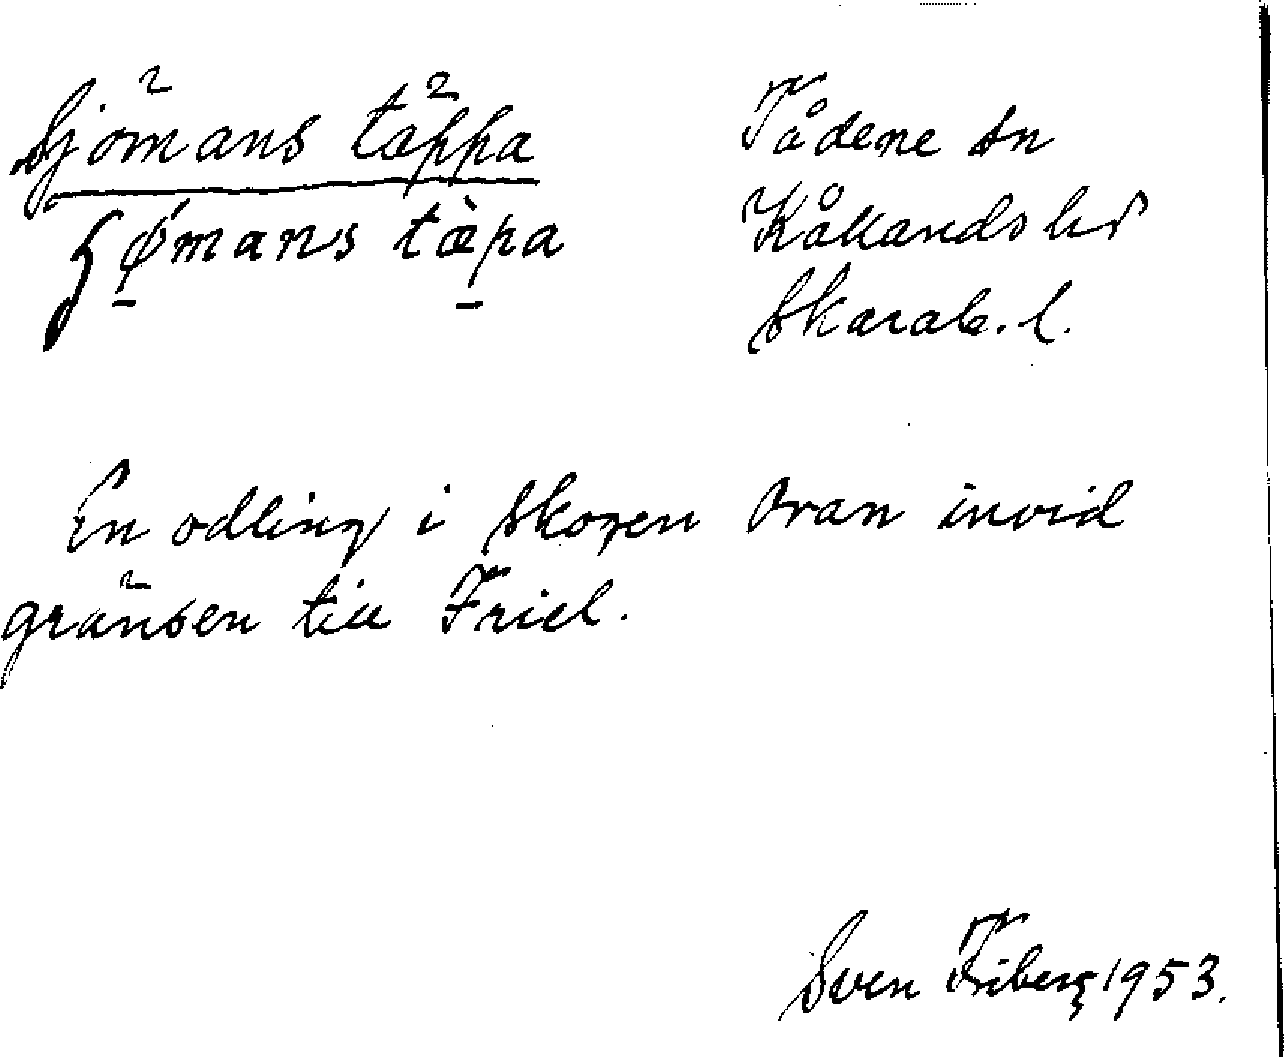 Sjömans täppa
ʃǿmans tæ̀pa
Tådene sn
Kållands hd
Skarab. l.
En odling i skogen ovan invid
gränsen till Friel.
Sven Friberg 1953.